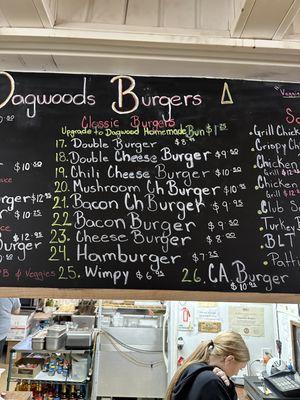 Dagwoods Burgers
Classic Burgers
Upgrade to Dagwood Homemade Bun $1.25
17. Double Burger $8.
18. Double Cheese Burger $9.50
19. Chili Cheese Burger $10.
20. Mushroom Ch Burger $10.
21. Bacon Ch Burger $9.95
22. Bacon Burger $9.
23. Cheese Burger $8.00
24. Hamburger $7.
25. Wimpy $6. 26. CA Burger
$10.
$10.
$12.
$10.
$12.
Burger
& Veggies
Grill Chick
Crispy Ch
Chicken
Grill $12.
Chicken
Grill $12.
Club S
Turkey B
BLT
Patty